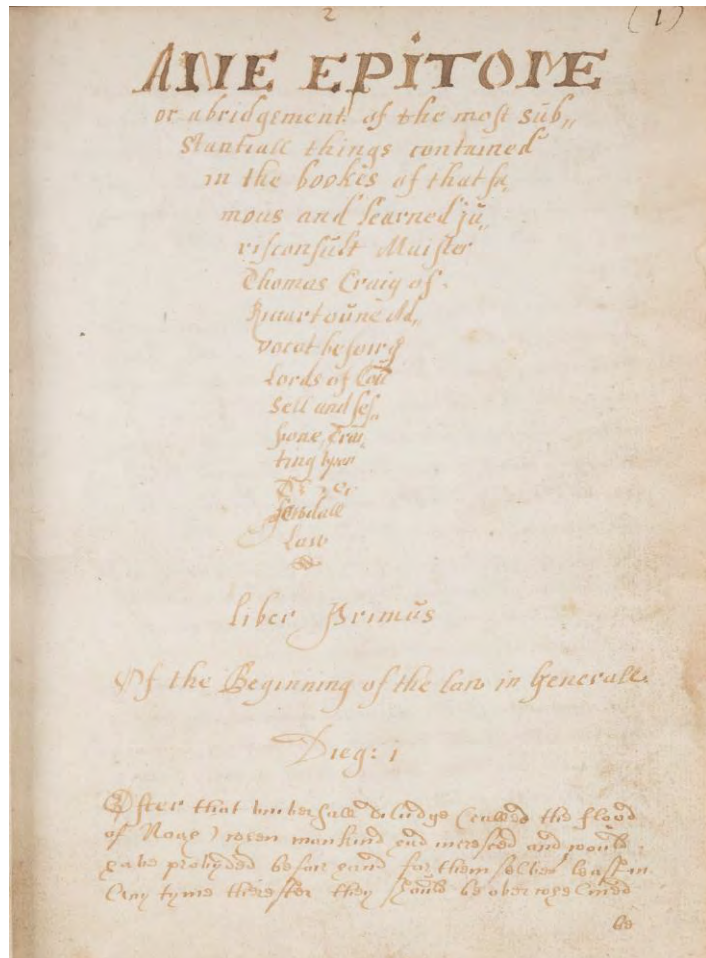 2 (1)
ANE EPITOME
or abridgement of the most sub,,
stantiall things contained
in the bookes of that fa,,
mous and learned ju,,
risconsult Maister
Thomas Craig of
Ricartoune Ad,,
vocat befoir the
Lords of Coū
sell and ses,,
sione, Trai
ting upon
fewdall
Law
liber Primus
Of the Beginning of the law in Generall.
Dieg: 1
After that universall diludge (called the flood
of Noae) when mankind had incresed and would
have provyded befoir hand for themselves least in
any tyme therefter they should be overwhelmed
be